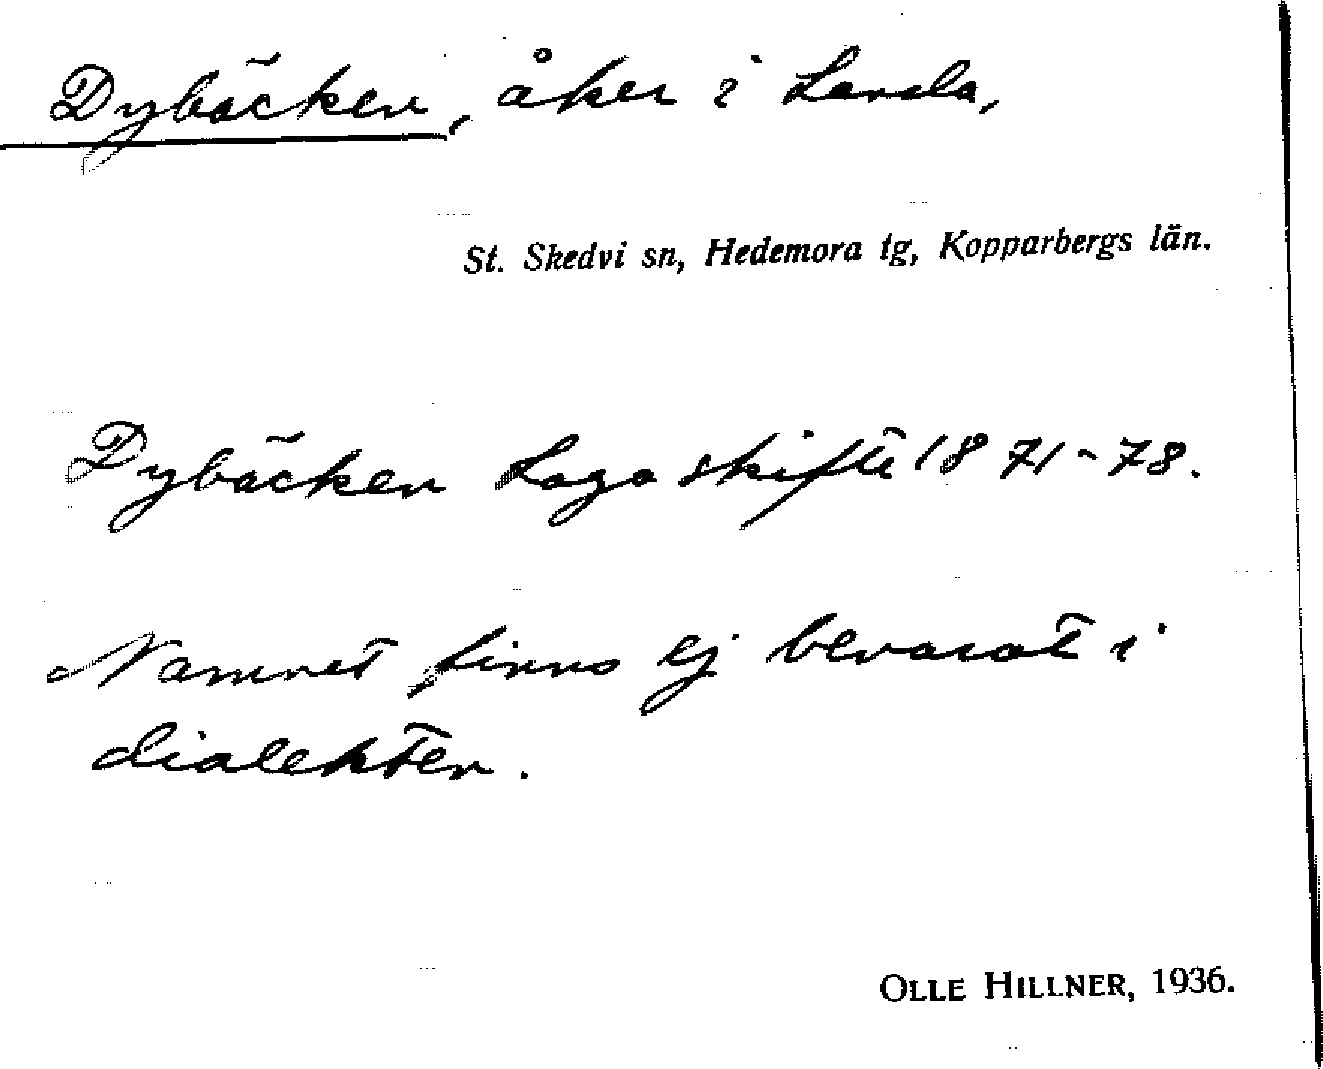 Dybäcken, åker i Landa,
St. Skedvi sn, Hedemora tg, Kopparbergs län.
Dybäcken Laga skifte 1871-78.
Namnet finns ej bevarat i
dialekten.
OLLE HILLNER, 1936.